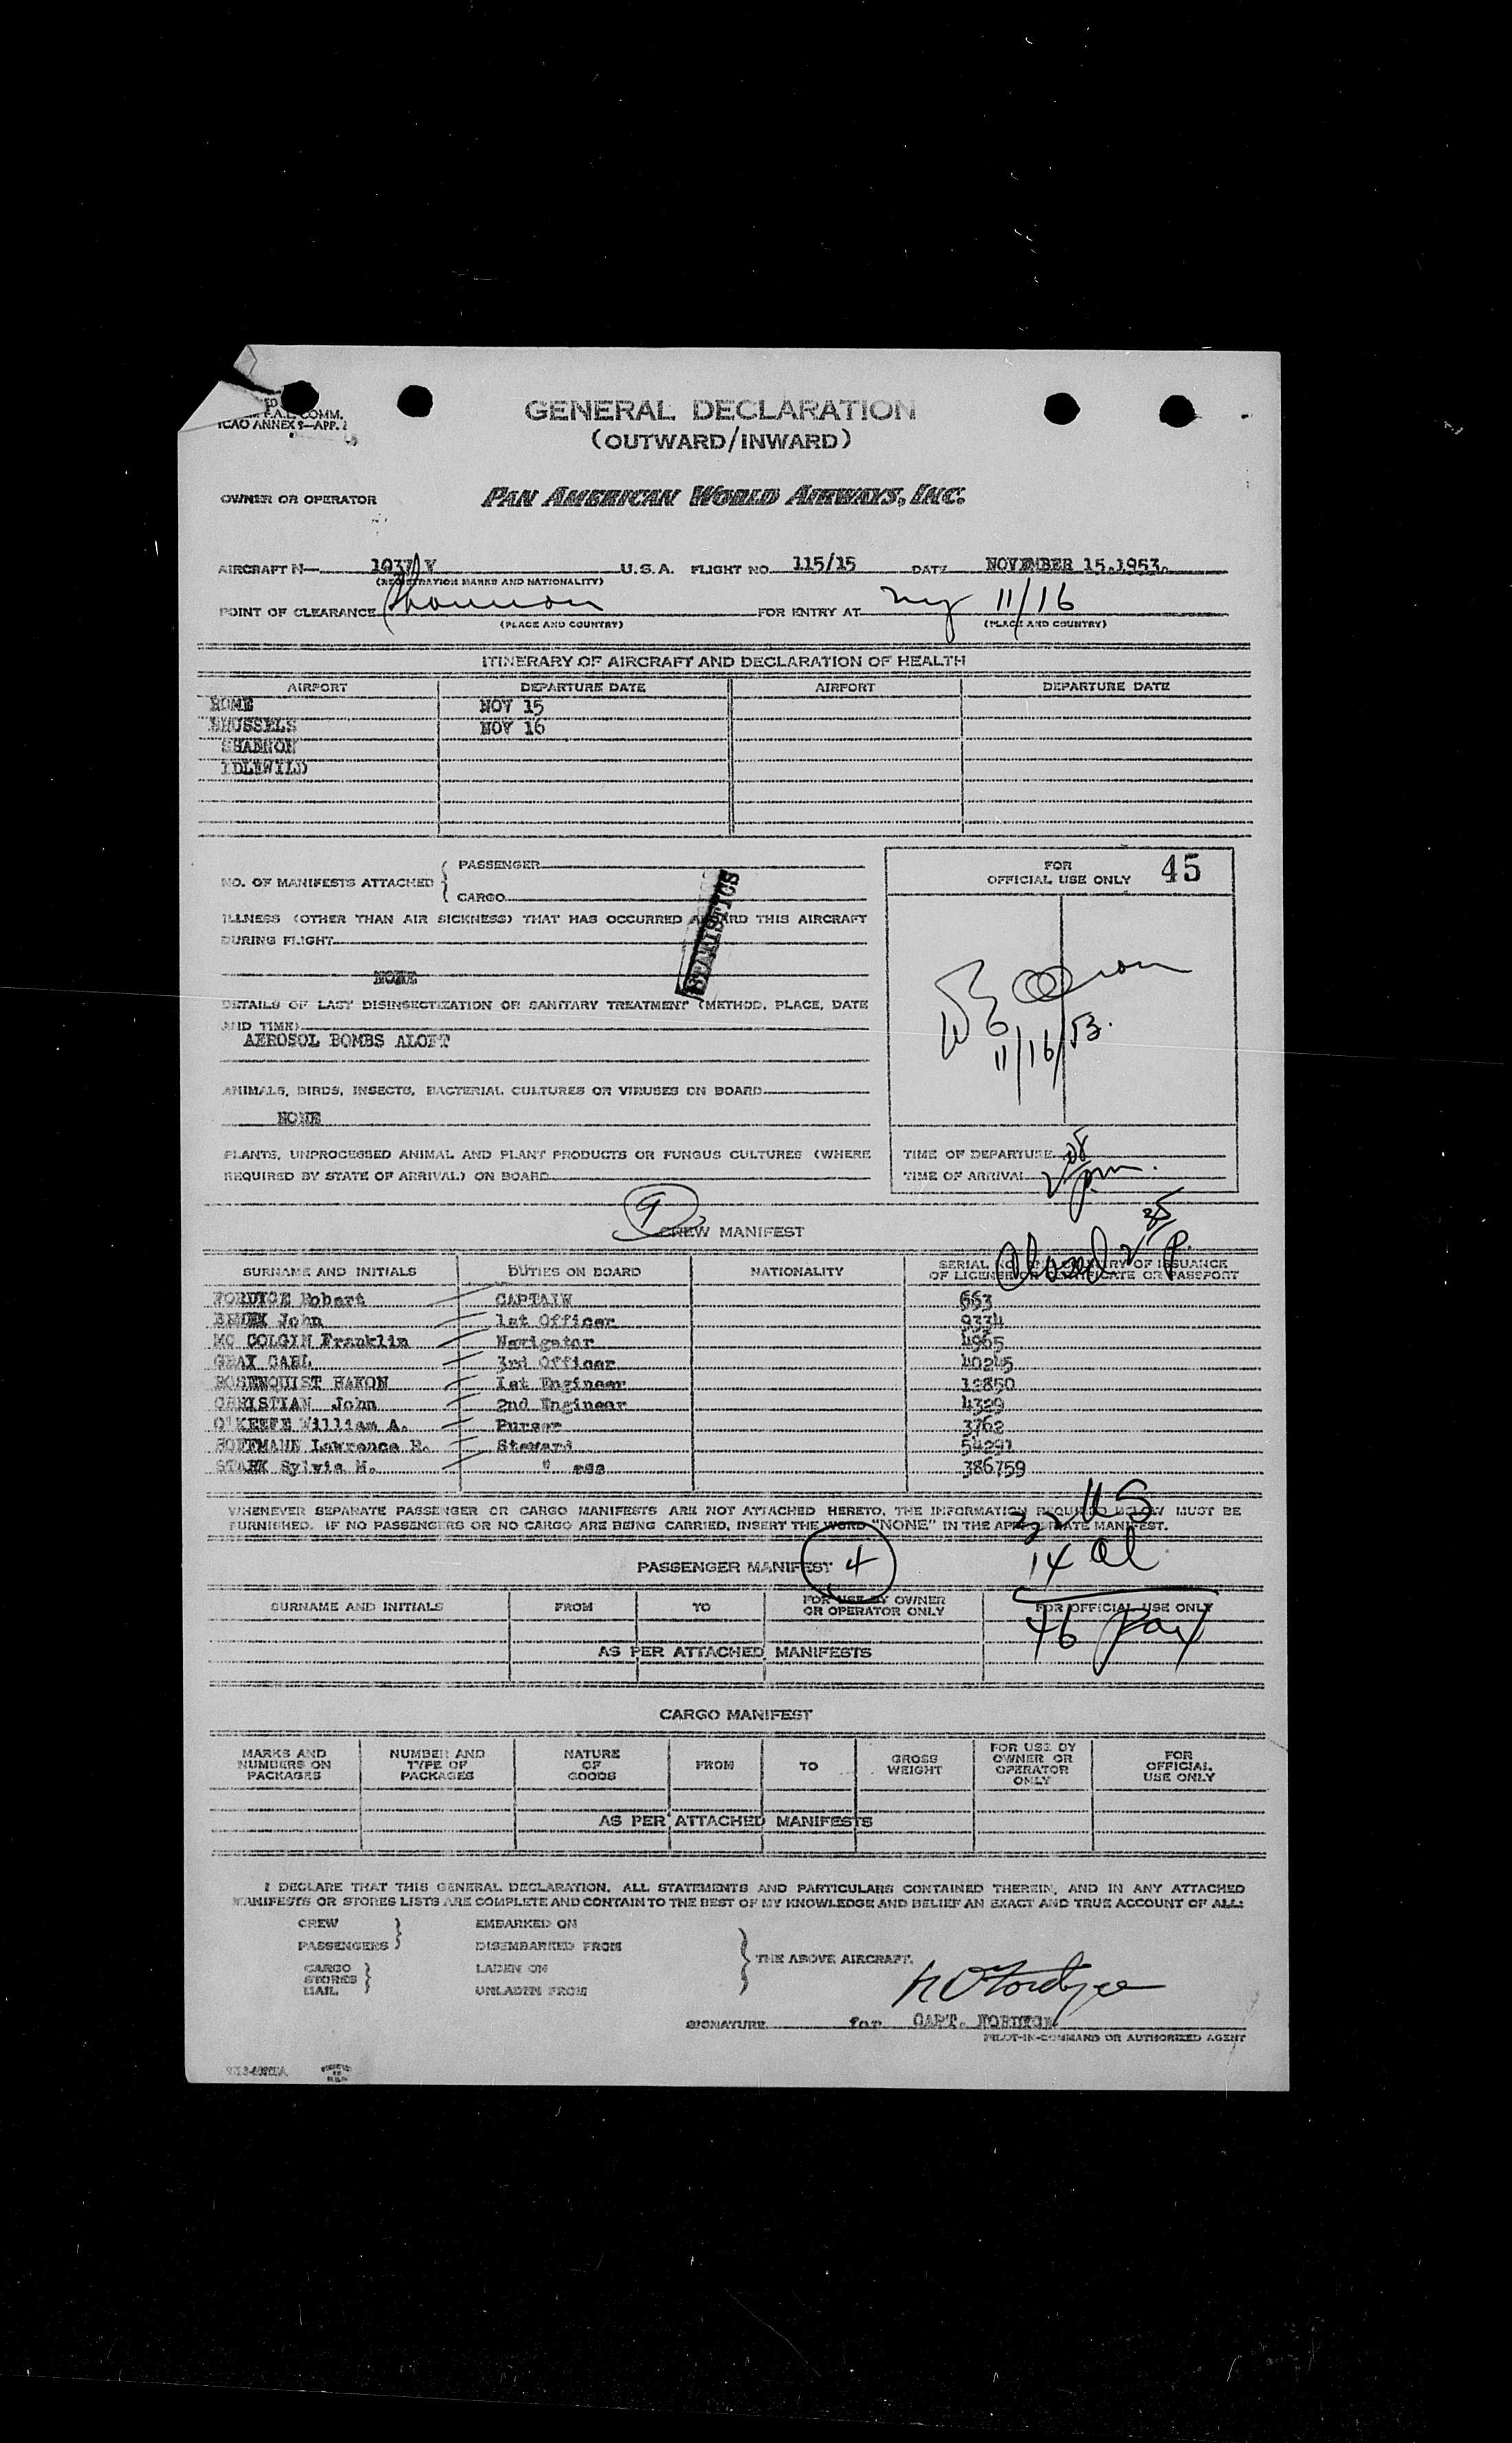 COMM.
ICAO ANNEX 9—APP. 2
GENERAL DECLARATION
(OUTWARD/INWARD)
OWNER OR OPERATOR PAN AMERICAN WORLD AIRWAYS, INC.
AIRCRAFT N— 1037 V U.S.A. FLIGHT NO. 115/15 DATE NOVEMBER 15.1953.
(REGISTRATION MARKS AND NATIONALITY)
POINT OF CLEARANCE Shannon FOR ENTRY AT ny 11/16
(PLACE AND COUNTRY) (PLACE AND COUNTRY)
ITINERARY OF AIRCRAFT AND DECLARATION OF HEALTH
AIRPORT DEPARTURE DATE AIRPORT DEPARTURE DATE
ROME NOV 15
BRUSSELS NOV 16
SHANNON
IDLEWILD
NO. OF MANIFESTS ATTACHED { PASSENGER
CARGO
STATISTICS
ILLNESS (OTHER THAN AIR SICKNESS) THAT HAS OCCURRED ABOARD THIS AIRCRAFT
DURING FLIGHT
NONE
DETAILS OF LAST DISINSECTIZATION OR SANITARY TREATMENT (METHOD, PLACE, DATE
AND TIME)
AEROSOL BOMBS ALOFT
ANIMALS, BIRDS, INSECTS, BACTERIAL CULTURES OR VIRUSES ON BOARD
NONE
PLANTS, UNPROCESSED ANIMAL AND PLANT PRODUCTS OR FUNGUS CULTURES (WHERE
REQUIRED BY STATE OF ARRIVAL) ON BOARD
FOR
OFFICIAL USE ONLY 45
11/16/53.
TIME OF DEPARTURE
TIME OF ARRIVAL 2 08 pm.
9
CREW MANIFEST
Closed 2 35 P.
SURNAME AND INITIALS DUTIES ON BOARD NATIONALITY SERIAL NO. AND COUNTRY OF ISSUANCE
OF LICENSE OR CERTIFICATE OR PASSPORT
FORDYCE Robert CAPTAIN 663
BEDEK John 1st Officer 9334
MC COLGIN Franklin Navigator 4965
GRAY CARL 3rd Officer 40245
ROSENQUIST HAKON 1st Engineer 12850
CHRISTIAN John 2nd Engineer 4329
O'KEEFE William A. Purser 3762
HOFFMANN Lawrence R. Steward 54291
STARK Sylvia M. " ess 386759
WHENEVER SEPARATE PASSENGER OR CARGO MANIFESTS ARE NOT ATTACHED HERETO, THE INFORMATION REQUIRED BELOW MUST BE
FURNISHED. IF NO PASSENGERS OR NO CARGO ARE BEING CARRIED, INSERT THE WORD "NONE" IN THE APPROPRIATE MANIFEST.
32 US
14 al
46 Pax
PASSENGER MANIFEST 4
SURNAME AND INITIALS FROM TO FOR USE BY OWNER
OR OPERATOR ONLY FOR OFFICIAL USE ONLY
AS PER ATTACHED MANIFESTS
CARGO MANIFEST
MARKS AND
NUMBERS ON
PACKAGES NUMBER AND
TYPE OF
PACKAGES NATURE
OF
GOODS FROM TO GROSS
WEIGHT FOR USE BY
OWNER OR
OPERATOR
ONLY FOR
OFFICIAL
USE ONLY
AS PER ATTACHED MANIFESTS
I DECLARE THAT THIS GENERAL DECLARATION, ALL STATEMENTS AND PARTICULARS CONTAINED THEREIN, AND IN ANY ATTACHED
MANIFESTS OR STORES LISTS ARE COMPLETE AND CONTAIN TO THE BEST OF MY KNOWLEDGE AND BELIEF AN EXACT AND TRUE ACCOUNT OF ALL:
CREW EMBARKED ON
PASSENGERS DISEMBARKED FROM
CARGO LADEN ON
STORES
MAIL UNLADEN FROM
THE ABOVE AIRCRAFT.
SIGNATURE for CAPT. FORDYCE
PILOT-IN-COMMAND OR AUTHORIZED AGENT